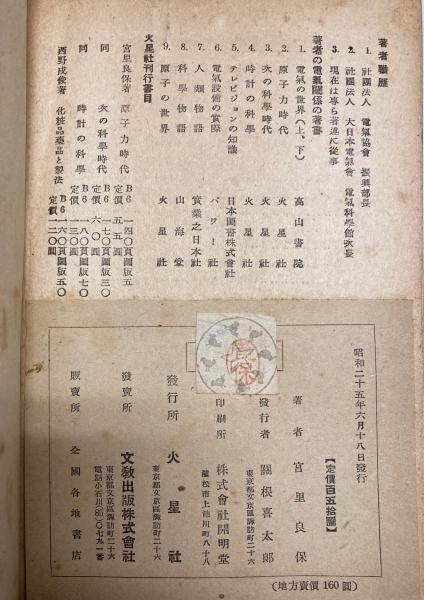 著者職歴
1. 社團法人 電氣協會 振興部長
2. 社團法人 大日本電氣會 電氣科學館次長
3. 現在は專ら著述に從事
著者の電氣關係の著書
1. 電氣の世界(上、下) 高山書院
2. 原子力時代 火星社
3. 次の科學時代 火星社
4. 時計の科學 火星社
5. テレビジョンの知識 日本圖書株式會社
6. 電氣設備の實際 パワー社
7. 人類物語 實業之日本社
8. 科學物語 山海堂
9. 原子の世界 火星社
火星社刊行書目
宮里良保著 原子力時代 B6 一四〇頁圖版五 定價 五五圓
同 次の科學時代 B6 一七〇頁圖版三〇 定價 六〇圓
同 時計の科學 B6 一八〇頁圖版七〇 定價 一三〇圓
西野戌俊著 化粧品藥品と製法 B6 一六〇頁圖版五〇 定價 一二〇圓
昭和二十五年六月十八日發行
【定價百五拾圓】
著者 宮里良保
發行者 關根喜太郎
東京都文京區諏訪町二十六
印刷所 株式會社開明堂
濱松市上池川町八十八
發行所 火星社
東京都文京區諏訪町二十六
發賣所 文教出版株式會社
東京都文京區諏訪町二十六
電話小石川(85)〇七九一番
販賣所 全國各地書店
(地方賣價 160 圓)